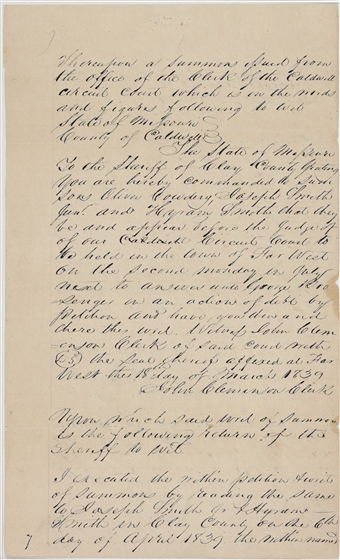 Whereupon a Summons issued from
the office of the Clerk of the Caldwell
circuit Court which is in the words
and figures following to wit
State of Missouri
County of Caldwell
The State of Missouri
To the Sheriff of Clay County Greeting
You are hereby commanded to Sum
mons Oliver Cowdery Joseph Smith
Jun. and Hyram Smith that they
be and appear before the Judge of
of our Caldwell Circuit Court to
be held in the town of Far West
on the second monday in July
next to answer unto George
in an action of debt by
petition and have you then and
there this writ. Witness John Clem
=enson Clerk of said court with
(LS) the seal thereof affixed at Far
West this 18 day of March 1839
John Clemenson Clerk
Upon which said writ of summons
is the following return of the
Sheriff to wit
I executed the within petition & writ
of summons by reading the same
to Joseph Smith jr & Hyram
Smith in Clay County on the 6th
day of April 1839, the within named
7